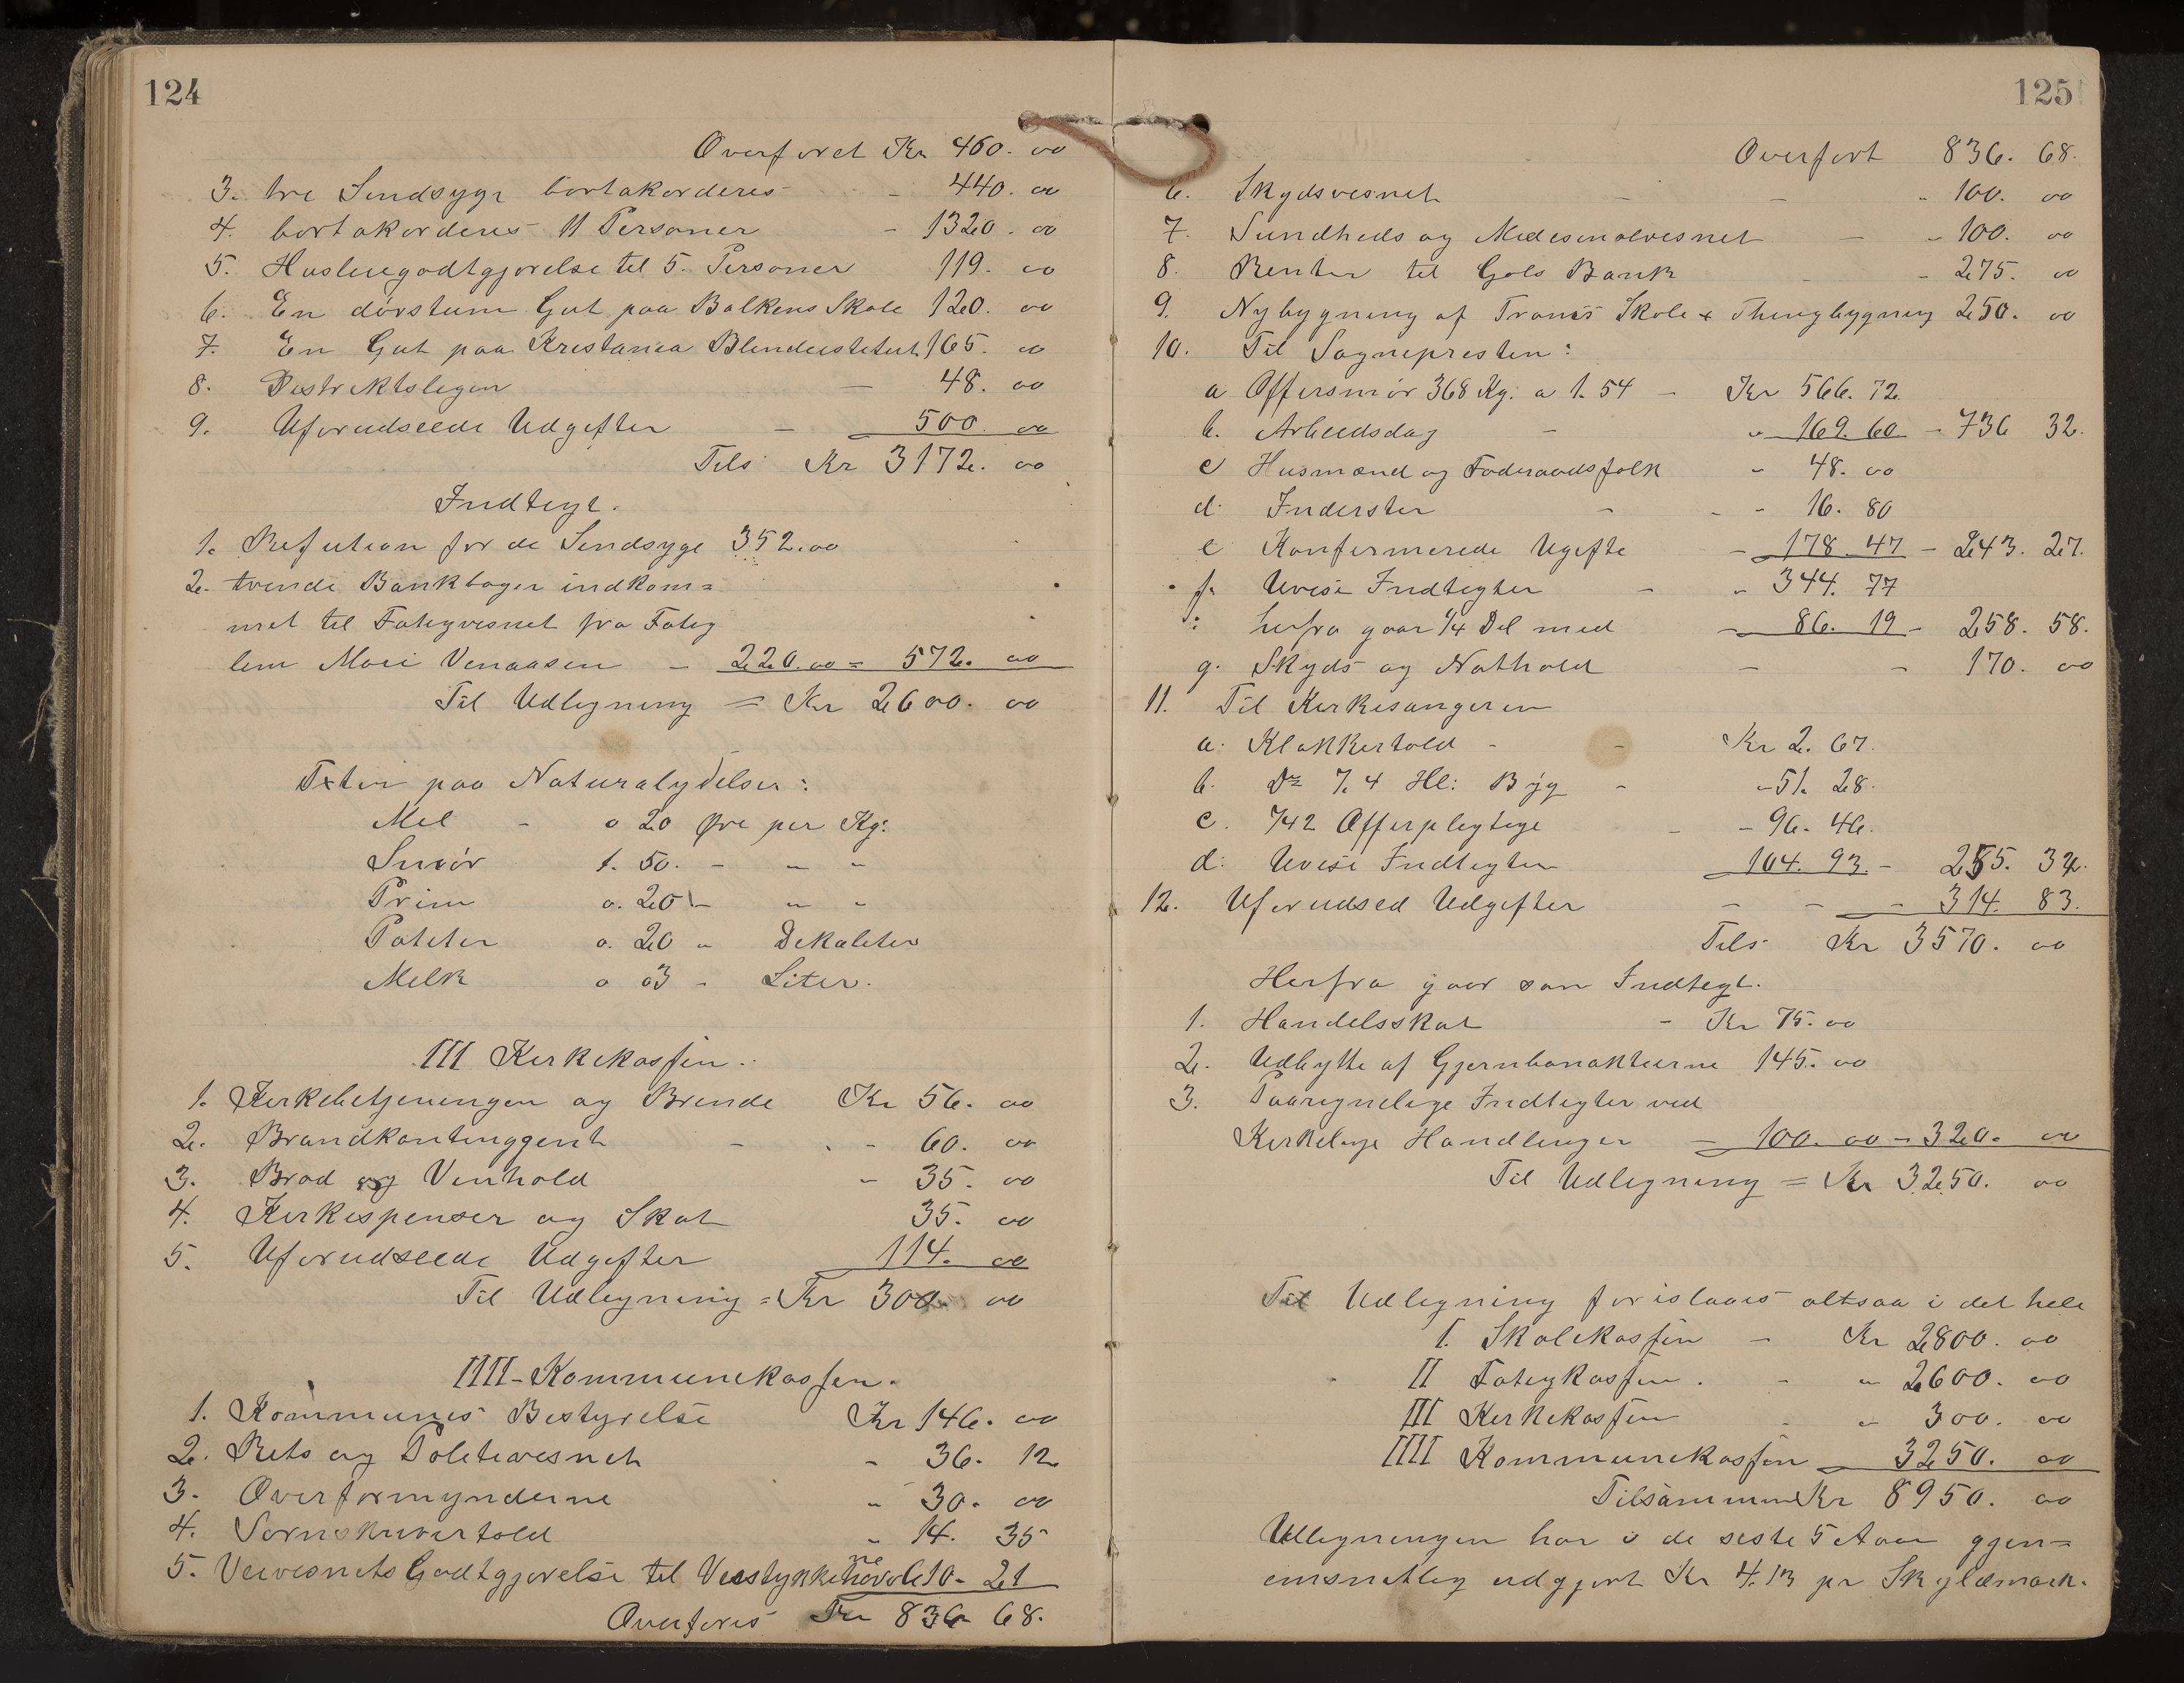 124
Overføret Kr 460. 00
3. tre Sindsyge bortakorderes - 440. 00
4. bortakorderes 11 Personer - 1320. 00
5. Husleiegodtgjørelse til 5. Personer 119. 00
6. En døvstum Gut paa Balkens Skole 120. 00
7. En Gut paa Kristania Blindeistitut 165. 00
8. Distriktslegen — 48. 00
9. Uforudseede Udgifter — 500. 00
Tils Kr 3172. 00
Indtegt.
1. Refution for de Sindsyge 352.00
2. tvende Bankbøger indkom=
met til Fategvesnet fra Fateg
lem Mari Venaasen - 220.00 = 572. 00
Til Udligning = Kr 2600. 00
Texter paa Naturalydelser:
Mel - o 20 Øre per Kg:
Smør 1. 50. - " "
Prim o. 20 - " "
Poteter o. 20 " Dekaliter
Melk o 03 - Liter.
III Kirkekassen.
1. Kirkebetjeningen og Brende Kr 56. 00
2. Brandkontinggent - - 60. 00
3. Brød og Vinhold - 35. 00
4. Kirkespenser og Skat 35. 00
5. Uforudseede Udgifter 114. 00
Til Udligning = Kr 300. 00
IIII - Kommunekassen.
1. Kommunes Bestyrelse Kr 146. 00
2. Rets og Politivesnet - 36. 12
3. Overformynderne " 30. 00
4. Sornskrivertold " 14. 35
5. Veivesnets Godtgjørelse til 610. 21
Overføres Kr 836 68.
125
Overført 836. 68.
6. Skydsvesnet - - " 100. 00
7. Sundheds og Medesinalvesnet — - 100. 00
8. Renter til Gols Bank - 275. 00
9. Nybygning af Skole + Thingbygning 250. 00
10. Til Sognepresten:
a Offersmør 368 Kg. a 1.54 - Kr 566. 72.
b. Arbeidsdag - " 169. 60 - 736 32.
c Husmænd og Føderaadsfolk - 48. 00
d. Inderster - - - 16. 80
e Konfirmerede Ugifte - 178. 47 - 243. 27.
f. Uvise Indtegter - " 344. 77
: herfra gaar 1/4 Del med - 86. 19 - 258. 58.
g. Skyds og Nathold - - 170. 00
11. Til Kirkesangeren
a. Klokkertold - - Kr 2. 67.
b. Do 7.4 Hl: Byg - - 51. 28.
c. 742 Offerplegtige - - 96. 46.
d. Uvise Indtegter 104. 93. - 255. 34.
12. Uforudsed Udgifter - - - 314. 83.
Tils Kr 3570. 00
Herfra gaar som Indtegt.
1. Handelsskat - Kr 75. 00
2. Udbytte af Gjernbanakterne 145. 00
3. Paaregnelige Indtegter ved
Kirkelige Handlinger = 100. 00 - 320. 00
Til Udligning = Kr 3250. 00
Til Udligning forislaaes altsaa i det hele
I. Skolekassen - Kr 2800. 00
II Fategkassen. - " 2600. 00
III Kirkekassen - " 300. 00
IIII Kommunekassen - 3250. 00
Tilsammen Kr 8950. 00
Udligningen har i de siste 5 Aar gjen=
emsnitlig udgjort Kr 4.13 pr Skyldmark.